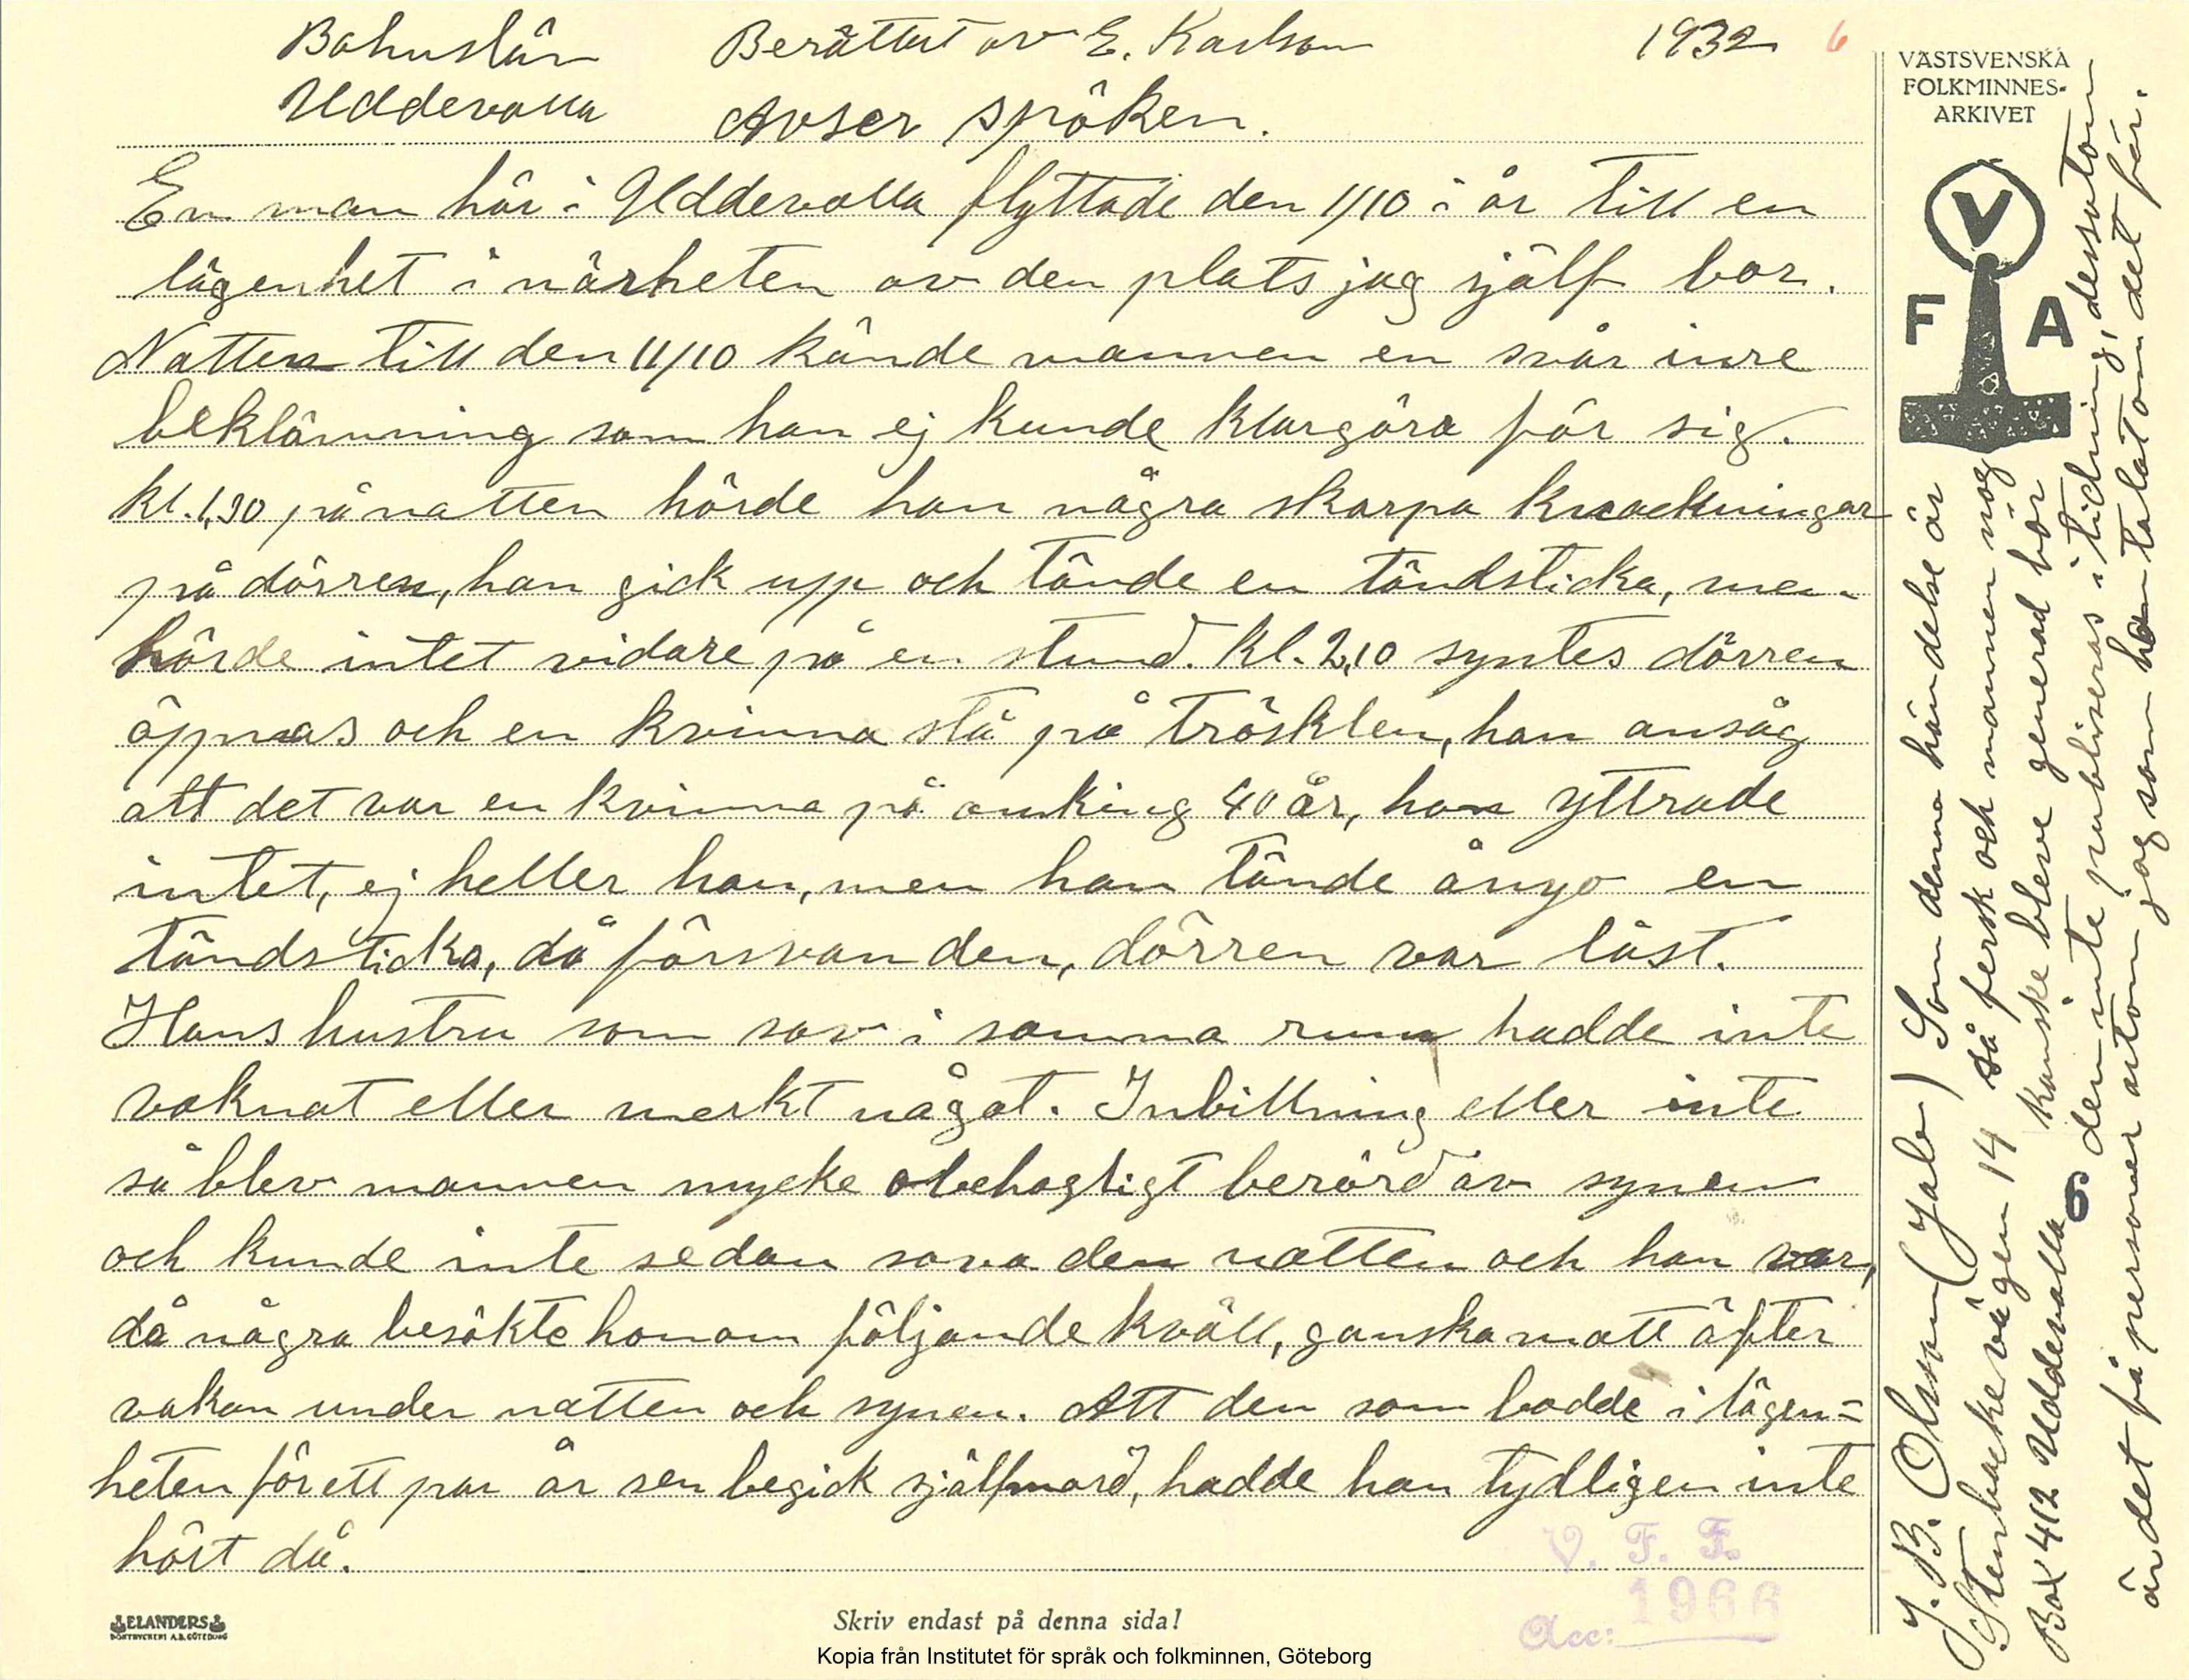 Bohuslän Berättat av E. Karlson 1932 6
Uddevalla Avser spöken.
En man här i Uddevalla flyttade den 1/10 i år till en
lägenhet i närheten av den plats jag sjālf bor.
Natten till den 11/10 kände mannen en svår inre
beklämning som han ej kunde klargöra för sig.
kl. 1,30 på natten hörde han några skarpa knackningar
på dörren, han gick upp och tände en tändsticka, men
hörde intet vidare på en stund. Kl. 2,10 syntes dörren
öppnas och en kvinna stå på trösklen, han ansåg
att det var en kvinna på omking 40 år, hon yttrade
intet, ej heller han, men han tände ånyo en
tändsticka, då försvan den, dörren var låst.
Hans hustru som sov i samma rum hadde inte
vaknat eller merkt något. Inbillning eller inte
så blev mannen mycke obehagligt berörd av synen
och kunde inte sedan sova den natten och han var,
då några besökte honom följande kväll, ganska matt äfter
vakan under natten och synen. Att den som bodde i lägen=
heten för ett par år sen begick sjâlfmord, hadde han tydligen inte
hört då.
ELANDERS
BOKTRYCKERI A.B. GÖTEBORG
Skriv endast på denna sida!
V. F. F.
Acc: 1966
Kopia från Institutet för språk och folkminnen, Göteborg
VÄSTSVENSKA
FOLKMINNES-
ARKIVET
V
F A
J. B. Olsson (Jabo) Som denna händelse är
Stenbackevägen 14 så fersk och mannen nog
Box 412 Uddevalla kanske bleve generad bör
den inte publiseras i tidning, dessutom
är det få personer utom jag som han talat om det för.